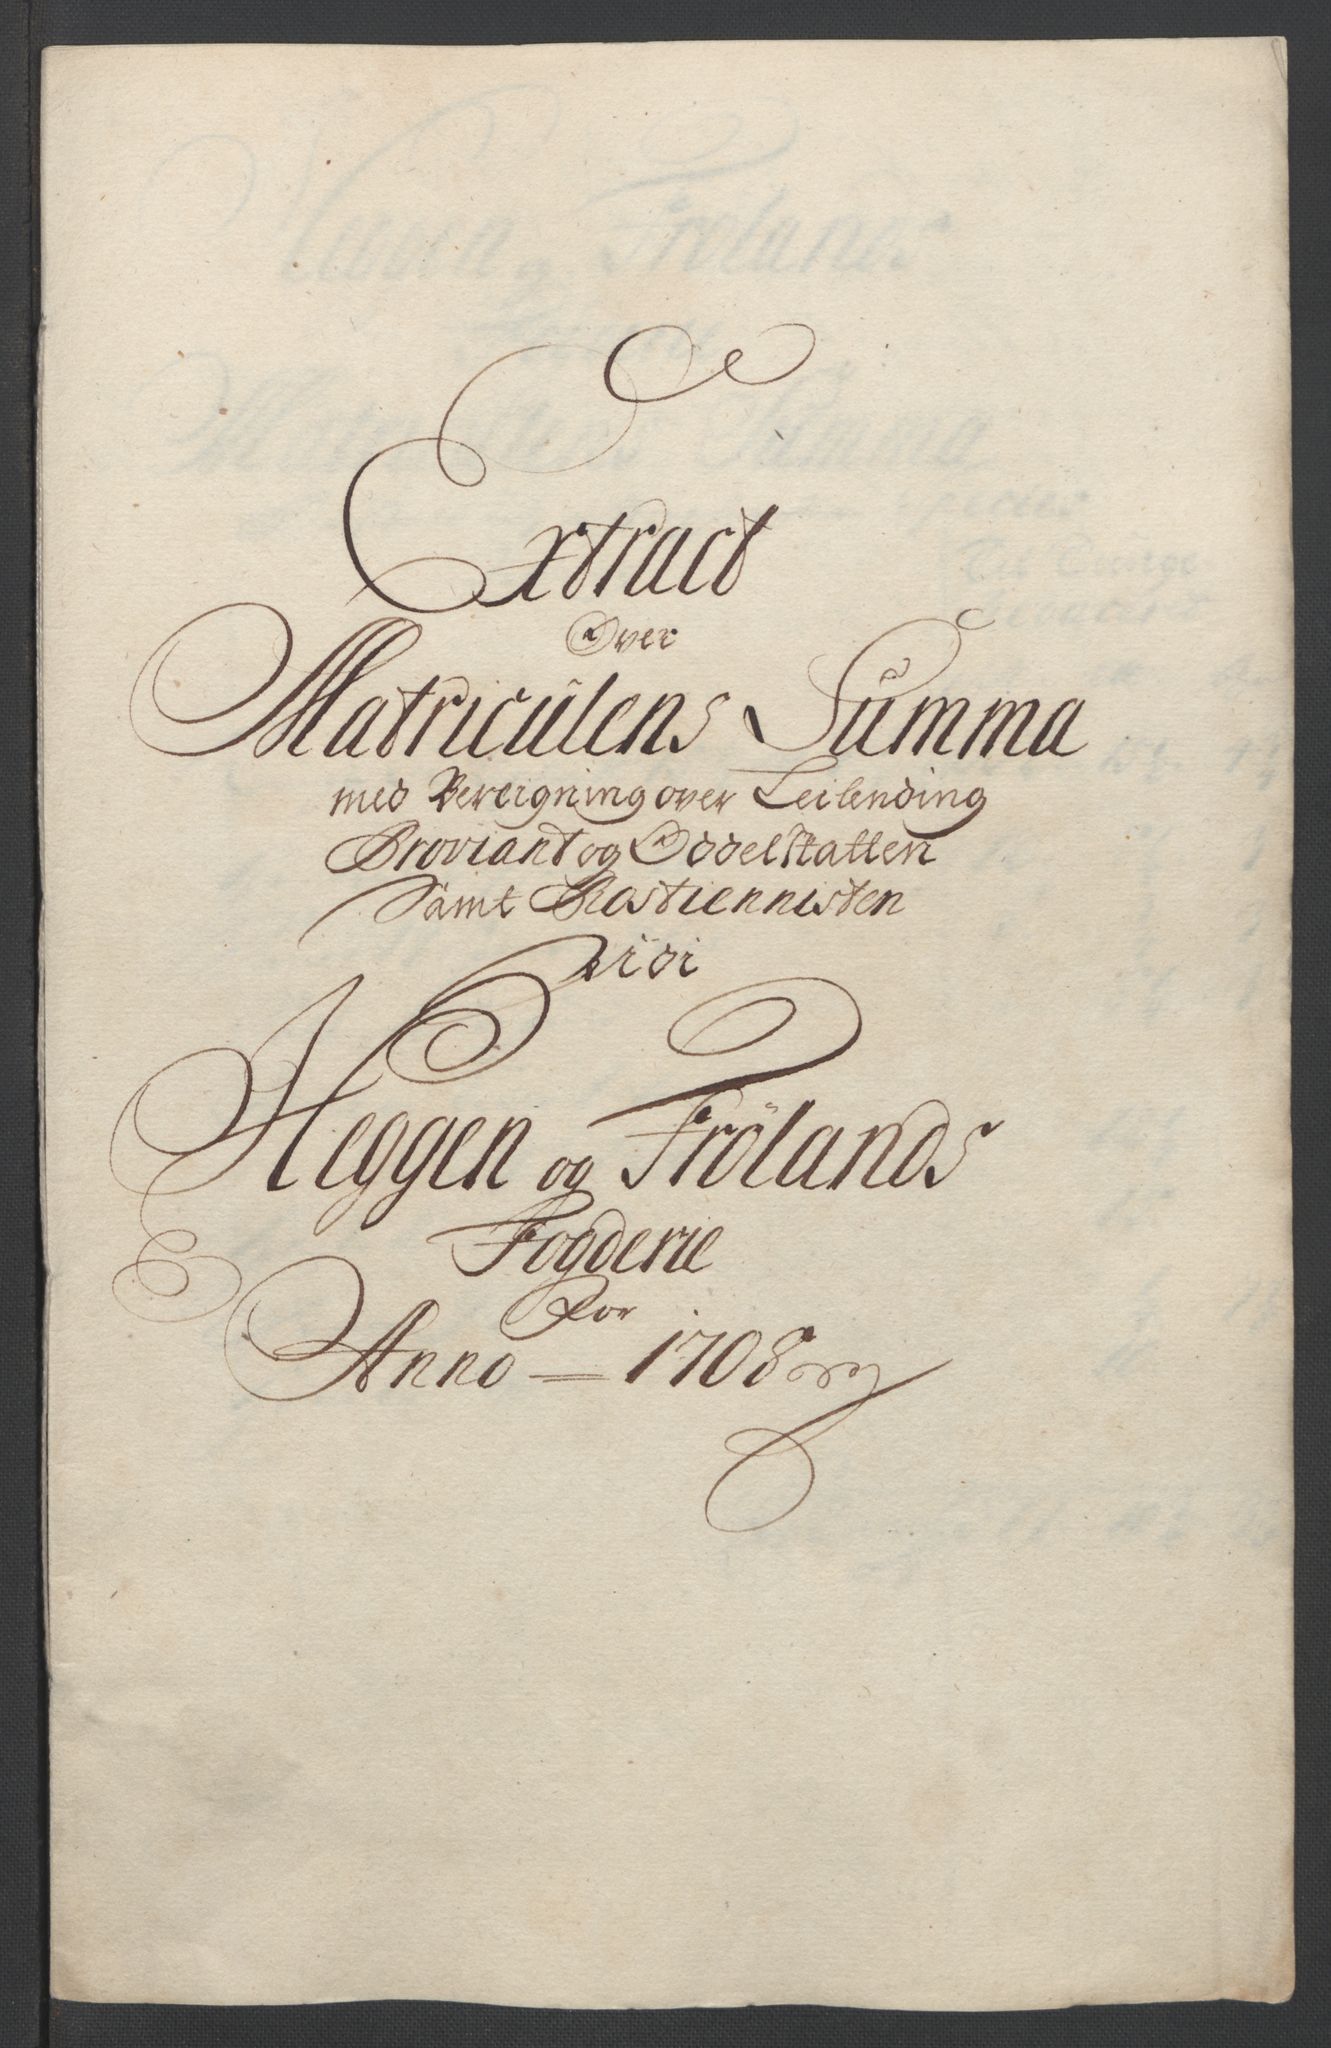 Extract
Over
Matriculens Summa
med Bereigning over Leilending
Proviant og Oddelskatten
Samt Rostiennisten
udi
Heggen og Frölands
Fogderie
For
Anno = 1708